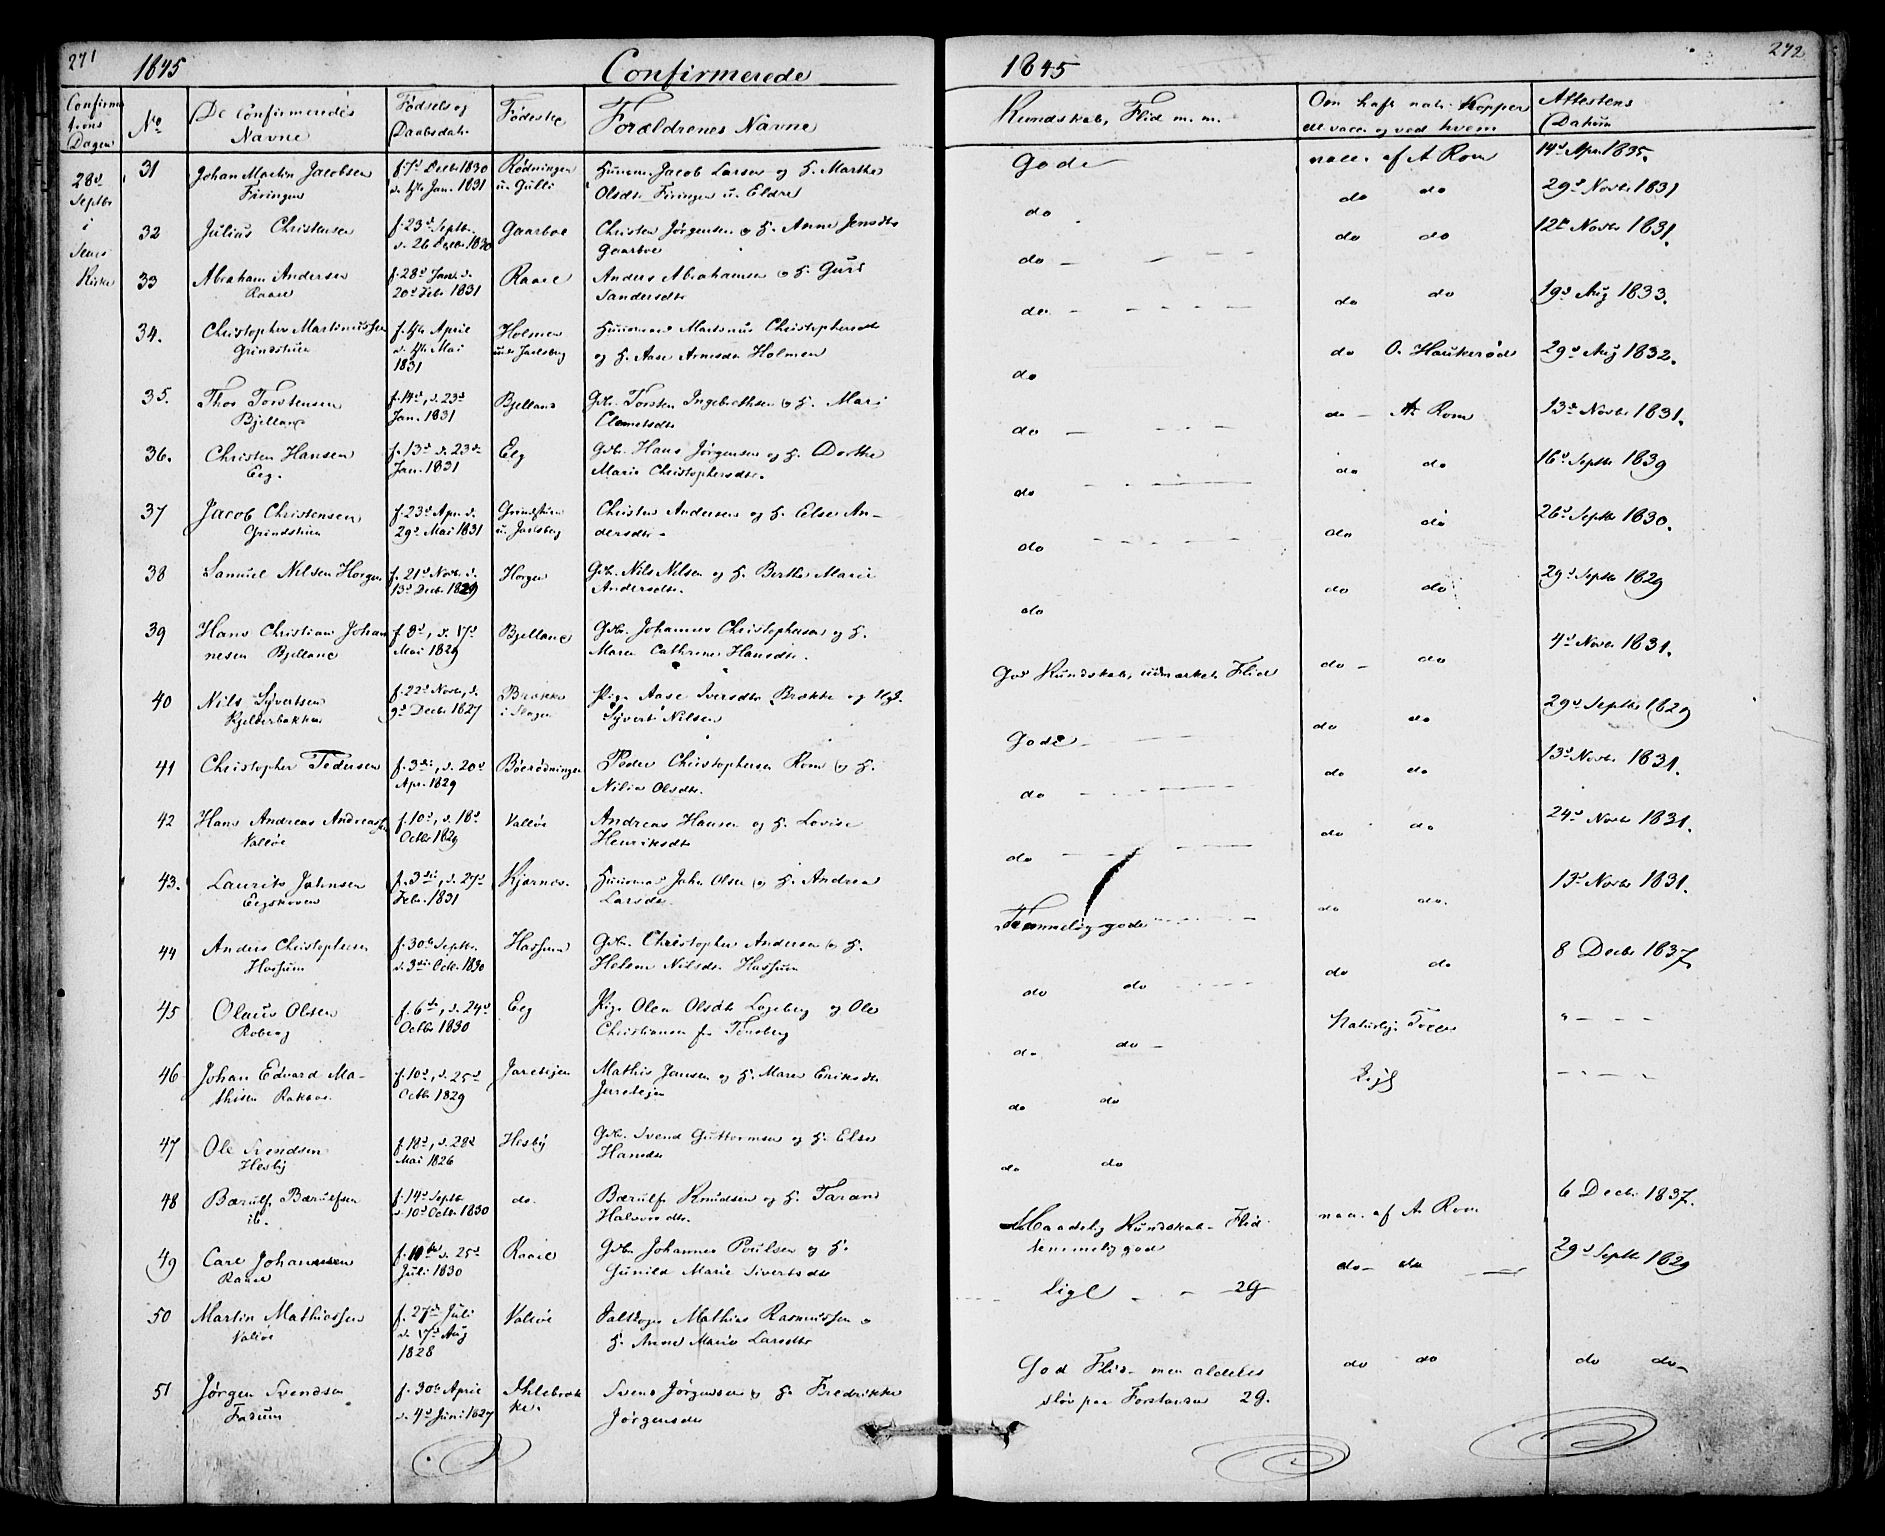 271
1845
Confirmerede
Confirma
tions
Dagen
No
De Confirmeredes
Navne
Fødsels og
Daabsdat.
Fødested
Forældrenes Navne
28d
Septbr
i
Sems
Kirke
31
Johan Martin Jacobsen
Firingen
f. 7d Decbr 1830
d. 1ste Jan. 1831
Rødningen
u. Gulli
Huusm. Jacob Larsen og H. Marthe
Olsdtr Firingen u. Eldre
32
Julius Christensen
f. 23d Septbr.
d. 26 Decbr 1830
Gaarboe
Christen Jørgensen og H. Anne Jensdtr
Gaarboe
33
Abraham Andersen
Raael
f. 28d Jan. d.
20d Febr 1831
Raael
Anders Abrahamsen og H. Guri
Sandersdtr
34.
Christopher Martinussen
Grindstuen
f. 1ste April
d. 1ste Mai
1831
Holmen
under Jarlsberg
Huusmand Martinus Christophersen
og H. Aase Arnesdtr Holmen
35.
Thor Torstensen
Bjelland
f. 14d, d. 23d
Jan. 1831
Bjelland
Gdbr. Torsten Ingebrethsen og H. Mari
Clemetsdtr
36.
Christen Hansen
Eeg.
f. 13d d. 23d
Jan. 1831
Eeg
Gdbr. Hans Jørgensen og H. Dorthe
Marie Christophersdtr.
37
Jacob Christensen
Grindstuen
f. 23d Apr. d.
29d Mai 1831
Grindstuen
u. Jarlsberg
Christen Andersen og H. Else An-
dersdtr.
38
Samuel Nilsen Horgen
f. 21d Novbr d.
13d Decbr 1829
Horgen
Gdbr. Nils Nilsen og H. Berthe Marie
Andersdtr.
39
Hans Christian Johan
nesen Bjelland
f. 8d, d. 17d
Mai 1829
Bjelland
Gdbr. Johannes Christophersen og H.
Maren Cathrine Hansdtr.
40
Nils Syvertsen
Kjelderbakken
f. 22d Novbr, d.
9d Decbr 1827
Brække
i Slagen
Pige Aase Iversdtr Brække og Ugk.
Syvert Nilsen
41
Christopher Pedersen
f. 3die, d. 20d
Apr. 1829
Bøerødningen
Peder Christophersen Rom og H.
Nilia Olsdtr.
42
Hans Andreas Andreassen
Valløe
f. 10d, d. 18d
Octbr 1829
Valløe
Andreas Hansen og H. Lovise
Henriksdtr
43.
Laurits Johnsen
Eegskoven
f. 3die, d. 27d
Febr. 1831
Kjærnes.
Huusmand John Olsen og H. Andrea
Larsdtr.
44
Anders Christophersen
Hassum
f. 30te Septbr.
d. 3die Octbr. 1830
Hassum
Gdbr. Christopher Andersen og H.
Helene Nilsdtr Hassum
45
Olaus Olsen
Roberg
f. 6te, d. 24d
Octbr 1830
Eeg
Pige Olea Olsdtr Logeberg og Ole
Christiansen fra Tønsberg
46
Johan Edvard Ma-
thisen Rakkaas
f. 10d, d. 25d
Octbr 1829
Jaretejen
Mathis Jansen og H. Maren Eriksdtr
Jarretejen
47
Ole Svendsen
Hesby
f. 18d, d. 28d
Mai 1826
Hesby
Gdbr. Svend Guttormsen og H. Else
Hansdtr
48
Bærulf Bærulfsen
ib.
f. 14d Septbr
d. 10d Octbr. 1830
do.
Bærulf Knudsen og H. Taran
Halvorsdtr.
49
Carl Johannesen
Raael
f. 10de d. 25d
Juli 1830
Raael
Gdbr. Johannes Poulsen og H.
Gunild Marie Sivertsdtr
50
Martin Mathiassen
Valløe
f. 27d Juli
d. 17d Aug
1828
Valløe
Mathias Rasmussen og
H. Anne Marie Larsdtr
51
Jørgen Svendsen
Fadum
f. 30te April
d. 4d Juni 1827
Ihlebræk
ke.
Svend Jørgensen og H. Fredrikke
Jørgensdtr
1845
272
Kundskab, Flid m. m.
Om haft nat: Kopper
el. vacc. og ved hvem
Attestens
Datum
Gode
vacc. af A Rom
14d Apr. 1835.
do
do do
29d Novbr 1831
do
do do
12te Novbr 1831.
do
do do
19d Aug 1833.
do
do O. Haukerød
29d Aug 1832.
do
do - A. Rom
13d Novbr 1831.
do
do do
16d Septbr 1839
do
do do
26d Septbr 1830.
do
do do
29d Septbr 1829
God Kundskab, udmærket Flid
do - do
4d Novbr 1831.
Gode
do do
29d Septbr 1829
do
do do
13d Novbr 1831.
do
do do
24d Novbr 1831.
Temmelig gode
do do.
13d Novbr 1831.
do do
do do
8 Decbr 1837
do do
Naturlige
do do
Ligl
do do
Maadelig Kundskab - Flid
temmelig god
vacc. af A Rom
6 Decbr. 1837.
ligl 2g
do - do
29d Septbr 1829
God Flid - men aldeles
sløv paa Forstanden 2g.
do do
do do